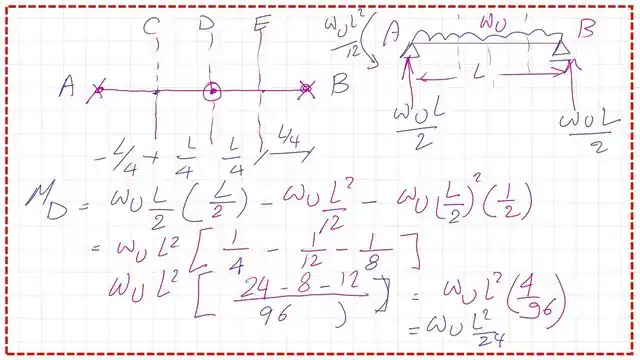 C D E
A B
L/4 L/4 L/4 L/4
ω_U L²/12
A ω_U B
L
ω_U L/2 ω_U L/2
M_D = ω_U L/2 (L/2) - ω_U L²/12 - ω_U (L/2)² (1/2)
= ω_U L² [ 1/4 - 1/12 - 1/8 ]
ω_U L² [ (24 - 8 - 12)/96 ) ] = ω_U L² (4/96)
= ω_U L²/24